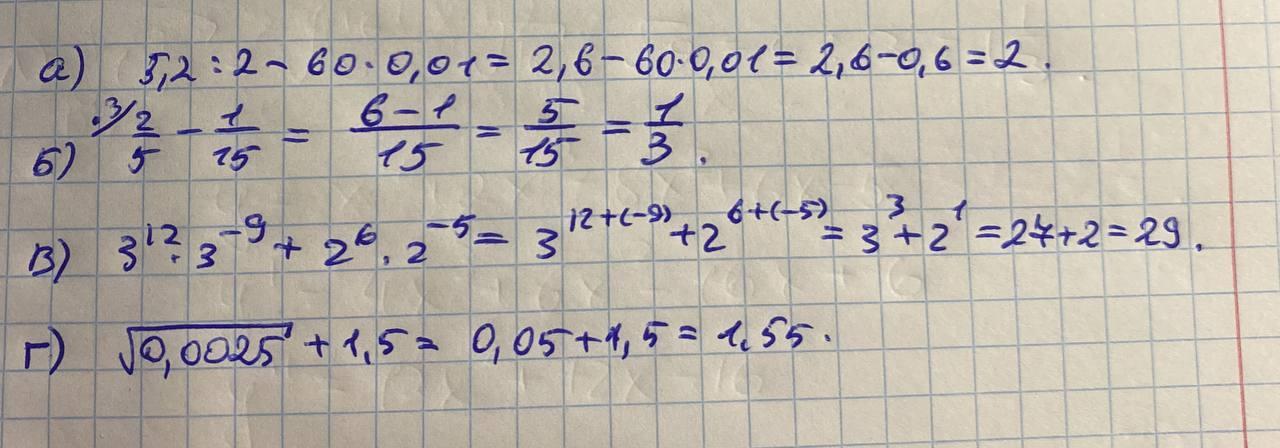 а) 5,2 : 2 - 60 · 0,01 = 2,6 - 60 · 0,01 = 2,6 - 0,6 = 2.
б) ³⁄ 2/5 - 1/15 = (6 - 1)/15 = 5/15 = 1/3.
в) 3¹² · 3⁻⁹ + 2⁶ · 2⁻⁵ = 3¹²⁺⁽⁻⁹⁾ + 2⁶⁺⁽⁻⁵⁾ = 3³ + 2¹ = 27 + 2 = 29.
г) √0,0025 + 1,5 = 0,05 + 1,5 = 1,55.